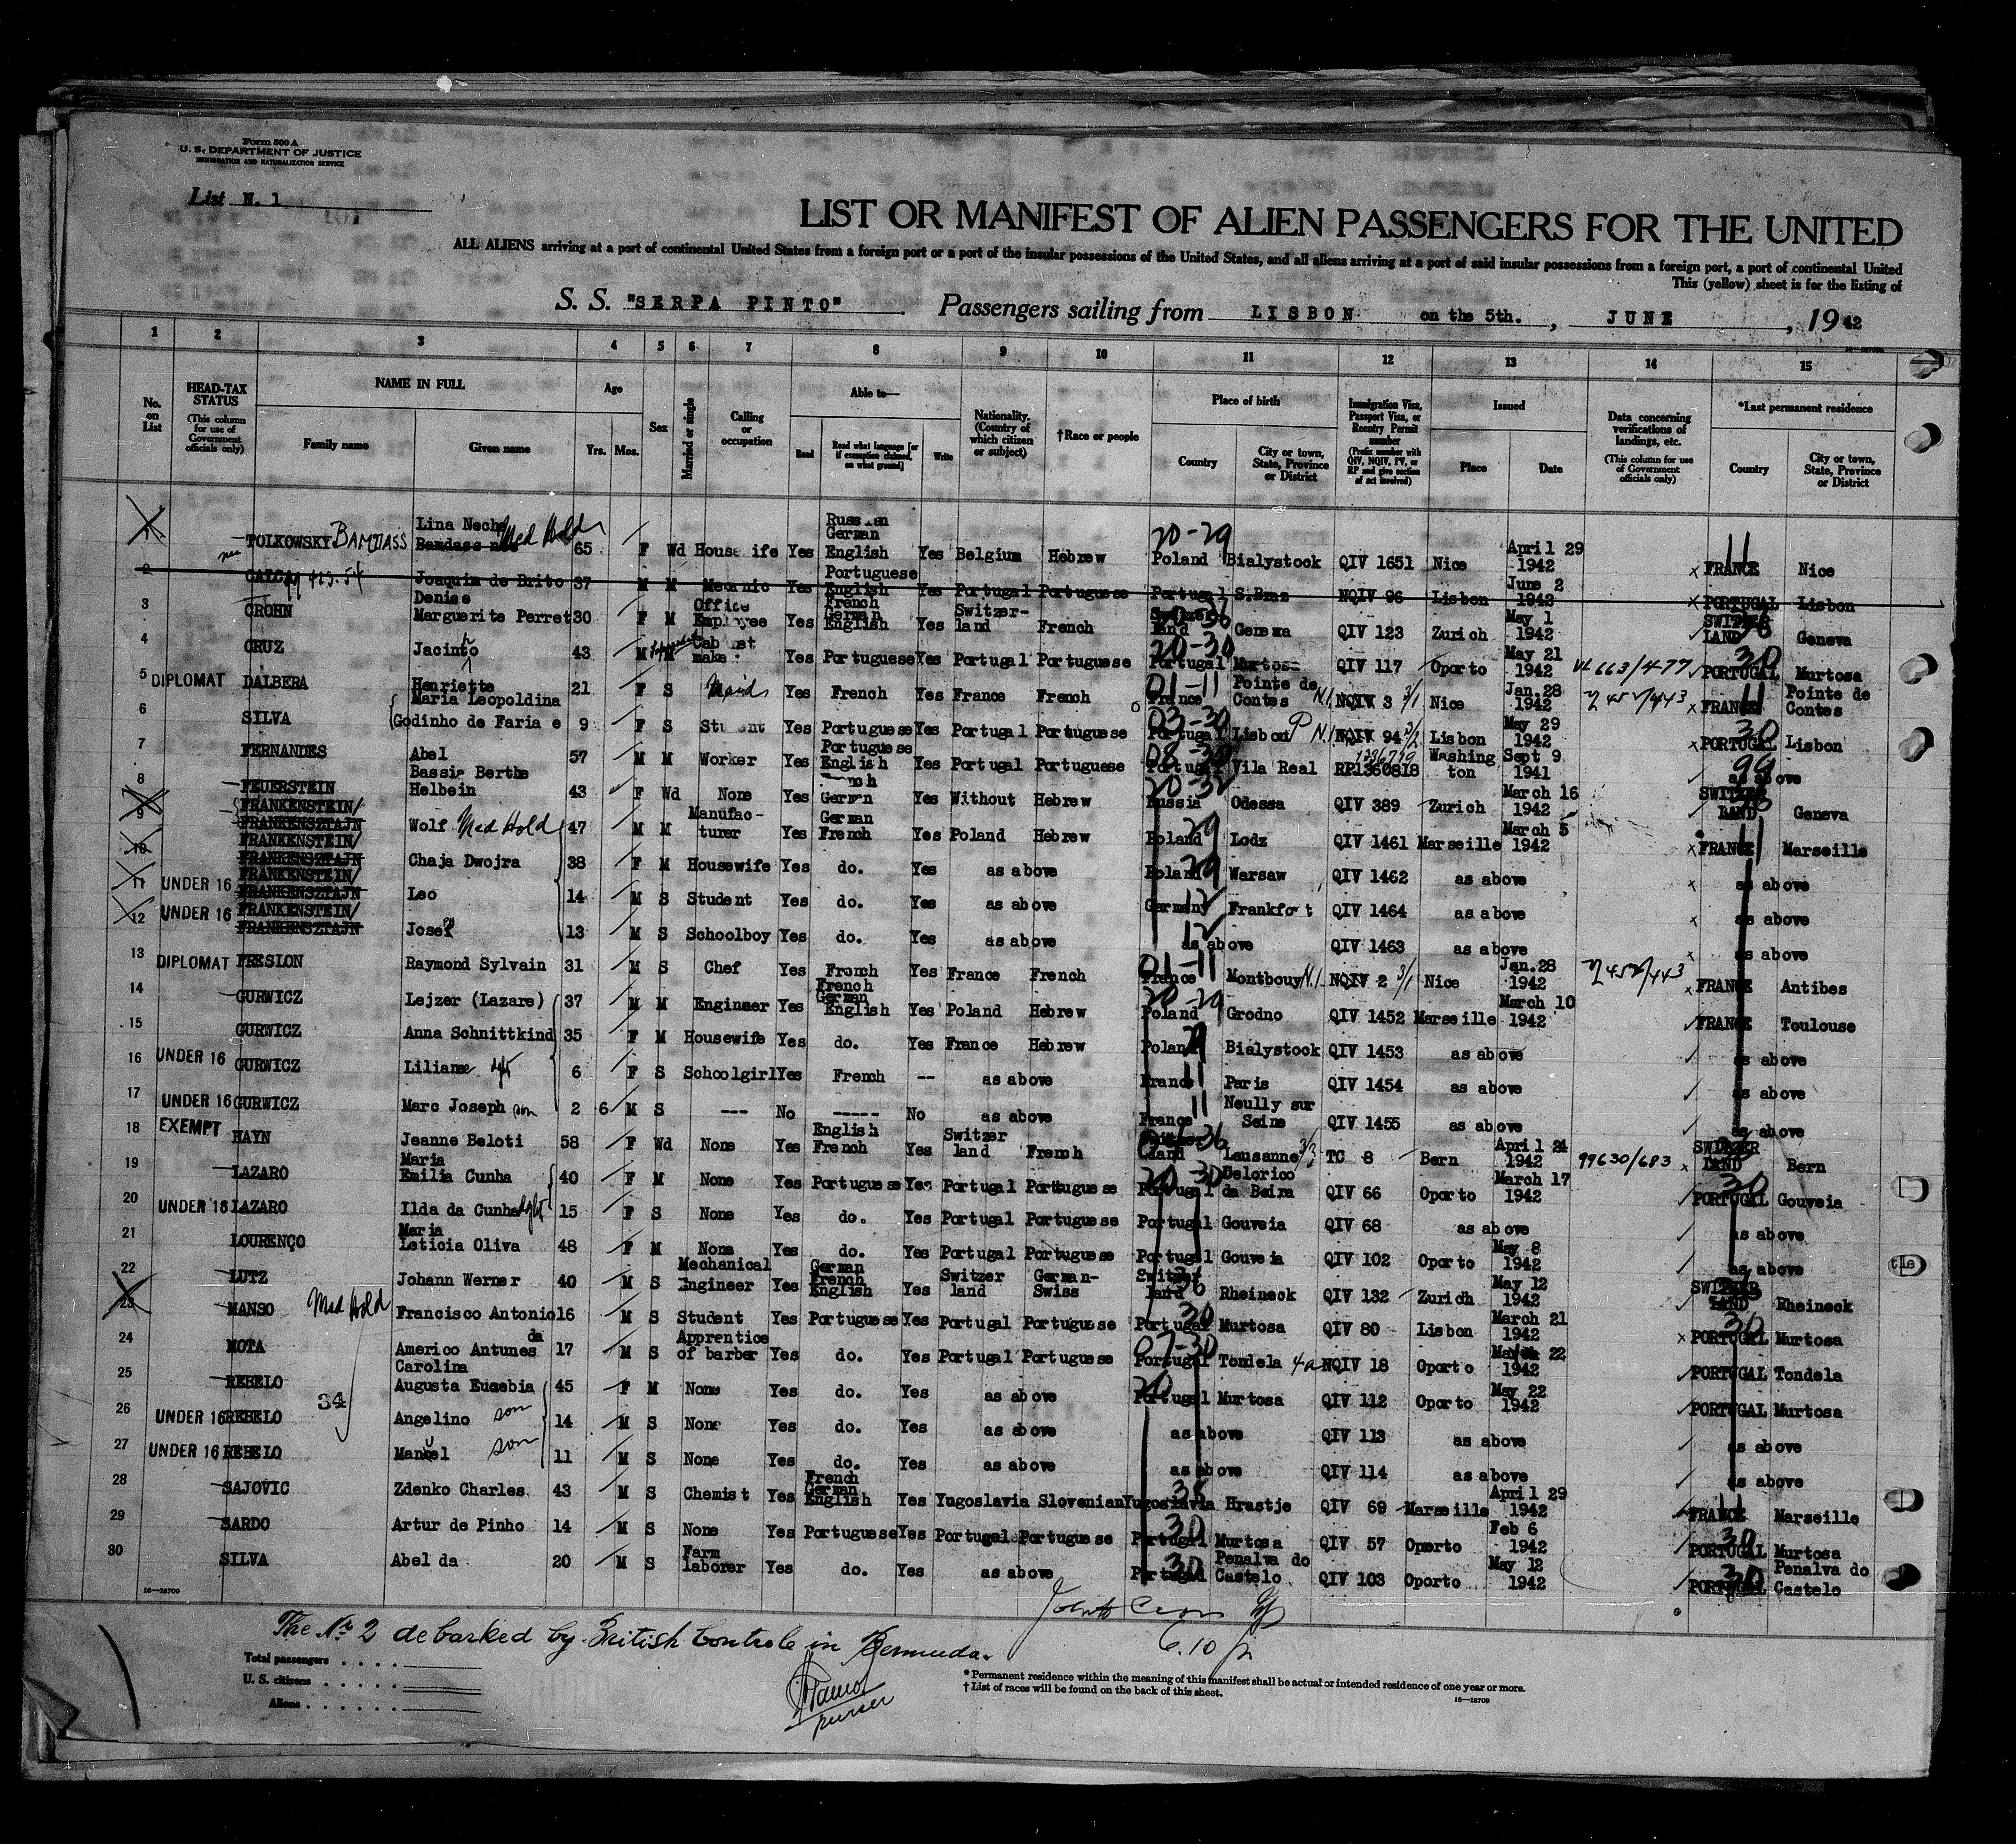 Form 500 A
U. S. DEPARTMENT OF JUSTICE
IMMIGRATION AND NATURALIZATION SERVICE
List N. 1
LIST OR MANIFEST OF ALIEN PASSENGERS FOR THE UNITED
ALL ALIENS arriving at a port of continental United States from a foreign port or a port of the insular possessions of the United States, and all aliens arriving at a port of said insular possessions from a foreign port, a port of continental United
This (yellow) sheet is for the listing of
S. S. "SERPA PINTO" Passengers sailing from LISBON on the 5th., JUNE, 1942
1 2 3 4 5 6 7 8 9 10 11 12 13 14 15
No. on List
HEAD-TAX STATUS (This column for use of Government officials only)
NAME IN FULL Family name Given name
Age Yrs. Mos.
Sex
Married or single
Calling or occupation
Able to— Read Read what language [or if exemption claimed, on what ground] Write
Nationality. (Country of which citizen or subject)
†Race or people
Place of birth Country City or town, State, Province or District
Immigration Visa, Passport Visa, or Reentry Permit number (Prefix number with QIV, NQIV, PV, or RP and give section of act involved)
Issued Place Date
Data concerning verifications of landings, etc. (This column for use of Government officials only)
*Last permanent residence Country City or town, State, Province or District
1 TOLKOWSKY nee BAMDASS Lina Necha Bamdass nee Med Hold 65 F Wd Housewife Yes Russian German English Yes Belgium Hebrew 20-29 Poland Bialystock QIV 1651 Nice April 29 1942 x FRANCE 11 Nice
2 Joaquim de Brito 37 M M Mecanic Yes Portuguese English Yes Portugal Portuguese Portugal S.Braz NQIV 96 Lisbon June 2 1942 x PORTUGAL Lisbon
3 CROHN Denise Marguerite Perret 30 F M Office Employee Yes French German English Yes Switzerland French Geneva QIV 123 Zurich May 1 1942 SWITZERLAND Geneva
4 CRUZ Jacinto 43 M M Cabinet maker Yes Portuguese Yes Portugal Portuguese 20-30 Portugal Murtosa QIV 117 Oporto May 21 1942 663/477 PORTUGAL 30 Murtosa
5 DIPLOMAT DALBERA Henriette 21 F S Maid Yes French Yes France French 01-11 France Pointe de Contes NQIV 3 3/1 Nice Jan.28 1942 x FRANCE 11 Pointe de Contes
6 SILVA Maria Leopoldina Godinho de Faria e 9 F S Student Yes Portuguese Yes Portugal Portuguese 03-30 Portugal Lisbon NQIV 94 3/2 Lisbon May 29 1942 x PORTUGAL 30 Lisbon
7 FERNANDES Abel 57 M M Worker Yes Portuguese English Yes Portugal Portuguese 08-30 Portugal Vila Real RP1360818 Washington Sept 9 1941 99 as above
8 FEUERSTEIN Bassie Berthe Helbein 43 F Wd None Yes French German Yes Without Hebrew 20-32 Russia Odessa QIV 389 Zurich March 16 1942 SWITZERLAND Geneva
9 FRANKENSTEIN/ FRANKENSZTAJN Wolf Med Hold 47 M M Manufacturer Yes German French Yes Poland Hebrew Poland 29 Lodz QIV 1461 Marseille March 5 1942 x FRANCE 11 Marseille
10 FRANKENSTEIN/ FRANKENSZTAJN Chaja Dwojra 38 F M Housewife Yes do. Yes as above Poland 29 Warsaw QIV 1462 as above x as above
11 UNDER 16 FRANKENSTEIN/ FRANKENSZTAJN Leo 14 M S Student Yes do. Yes as above Germany 12 Frankfort QIV 1464 as above x as above
12 UNDER 16 FRANKENSTEIN/ FRANKENSZTAJN Josef 13 M S Schoolboy Yes do. Yes as above 12 as above QIV 1463 as above x as above
13 DIPLOMAT FRESLON Raymond Sylvain 31 M S Chef Yes French Yes France French 01-11 France Montbouy NQIV 2 3/1 Nice Jan.28 1942 x FRANCE Antibes
14 GURWICZ Lejzer (Lazare) 37 M M Engineer Yes French German English Yes Poland Hebrew 20-29 Poland Grodno QIV 1452 Marseille March 10 1942 FRANCE Toulouse
15 GURWICZ Anna Schnittkind 35 F M Housewife Yes do. Yes France Hebrew Poland 29 Bialystock QIV 1453 as above as above
16 UNDER 16 GURWICZ Liliane 6 F S Schoolgirl Yes French -- as above France 11 Paris QIV 1454 as above as above
17 UNDER 16 GURWICZ Marc Joseph son 2 6 M S --- No ----- No as above France 11 Neully sur Seine QIV 1455 as above as above
18 EXEMPT HAYN Jeanne Beloti 58 F Wd None Yes English French Yes Switzerland French Lausanne 3/3 TC 8 Bern April 24 1942 99630/683 x SWITZERLAND Bern
19 LAZARO Maria Emilia Cunha 40 F M None Yes Portuguese Yes Portugal Portuguese 20-30 Portugal Celorico da Beira QIV 66 Oporto March 17 1942 PORTUGAL 30 Gouveia
20 UNDER 16 LAZARO Ilda da Cunha 15 F S None Yes do. Yes Portugal Portuguese Portugal Gouveia QIV 68 as above as above
21 LOURENÇO Maria Leticia Oliva 48 F M None Yes do. Yes Portugal Portuguese Portugal Gouveia QIV 102 Oporto May 8 1942 as above
22 LUTZ Johann Werner 40 M S Mechanical Engineer Yes German French English Yes Switzerland German-Swiss Switzerland 36 Rheineck QIV 132 Zurich May 12 1942 SWITZERLAND Rheineck
23 MANSO Med Hold Francisco Antonio 16 M S Student Yes Portuguese Yes Portugal Portuguese Portugal 30 Murtosa QIV 80 Lisbon March 21 1942 x PORTUGAL 30 Murtosa
24 MOTA Americo Antunes da 17 M S Apprentice of barber Yes do. Yes Portugal Portuguese 07-30 Portugal Tondela NQIV 18 Oporto 22 1942 PORTUGAL Tondela
25 REBELO Carolina Augusta Eusebia 45 F M None Yes do. Yes as above 20 Portugal Murtosa QIV 112 Oporto May 22 1942 PORTUGAL Murtosa
34
26 UNDER 16 REBELO Angelino son 14 M S None Yes do. Yes as above as above QIV 113 as above as above
27 UNDER 16 REBELO Manuel son 11 M S None Yes do. Yes as above as above QIV 114 as above as above
28 SAJOVIC Zdenko Charles 43 M S Chemist Yes French German English Yes Yugoslavia Slovenian Yugoslavia Hrastje QIV 69 Marseille April 29 1942 FRANCE 11 Marseille
29 SARDO Artur de Pinho 14 M S None Yes Portuguese Yes Portugal Portuguese Portugal 30 Murtosa QIV 57 Oporto Feb 6 1942 PORTUGAL 30 Murtosa
30 SILVA Abel da 20 M S Farm laborer Yes do. Yes as above Portugal 30 Penalva do Castelo QIV 103 Oporto May 12 1942 PORTUGAL 30 Penalva do Castelo
16—18709
The Nr 2 debarked by British Controle in Bermuda.
purser
Total passengers . . . .
U. S. citizens . . . . .
Aliens . . . . . .
* Permanent residence within the meaning of this manifest shall be actual or intended residence of one year or more.
† List of races will be found on the back of this sheet.
16—18709